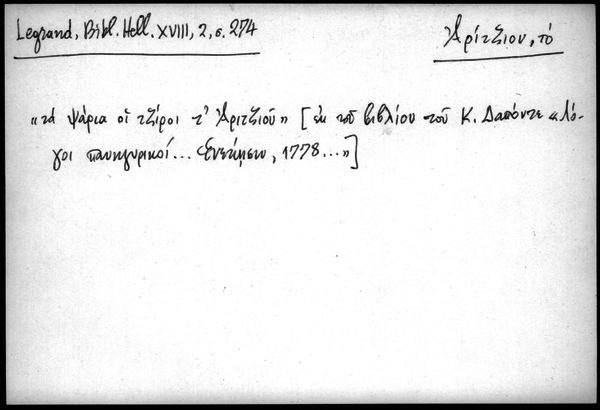 Legrand, Bibl. Hell. XVIII, 2, σ. 274
Ἀρίτζιον, τὸ
«τὰ ψάρια οἱ τζίροι τ' Ἀριτζιοῦ» [ἐκ τοῦ βιβλίου τοῦ Κ. Δαπόντε «Λό-
γοι πανηγυρικοί... Ἐνετίησιν, 1778...»]